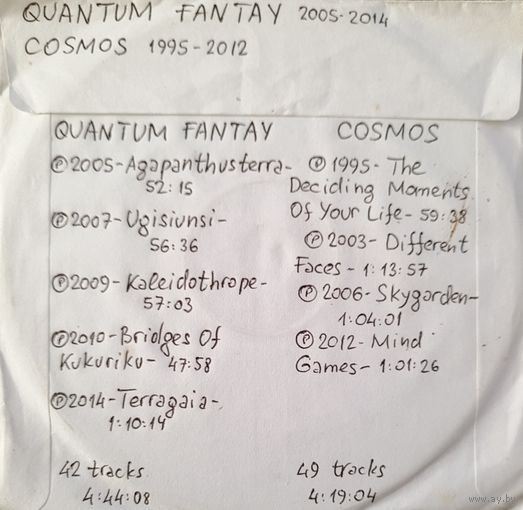 QUANTUM FANTAY 2005-2014
COSMOS 1995-2012
QUANTUM FANTAY
℗2005-Agapanthusterra-
52:15
℗2007-Ugisiunsi-
56:36
℗2009-Kaleidothrope-
57:03
℗2010-Bridges Of
Kukuriku- 47:58
℗2014-Terragaia-
1:10:14
42 tracks
4:44:08
COSMOS
℗1995- The
Deciding Moments
Of Your Life- 59:38
℗2003- Different
Faces- 1:13:57
℗2006-Skygarden-
1:04:01
℗2012-Mind
Games- 1:01:26
49 tracks
4:19:04
www.ay.by